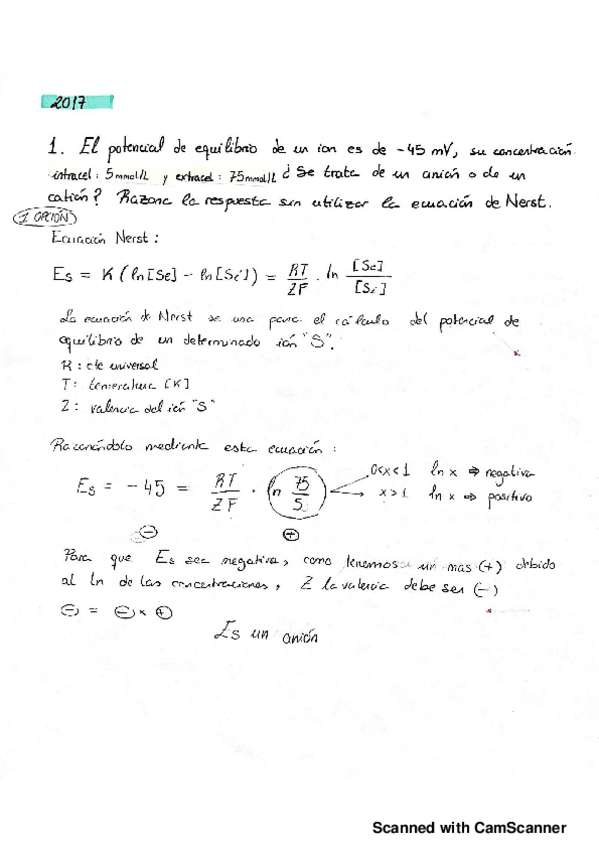 2017
1. El potencial de equilibrio de un ion es de -45 mV, su concentración
intracel: 5mmol/L y extracel: 75mmol/L ¿Se trata de un anión o de un
catión? Razona la respuesta sin utilizar la ecuación de Nerst.
1 OPCIÓN
Ecuación Nerst:
Es = K (ln[Se] - ln[Si]) = RT/ZF · ln [Se]/[Si]
La ecuación de Nerst se usa para el cálculo del potencial de
equilibrio de un determinado ión "S".
R: cte universal
T: temperatura [K]
Z: valencia del ión "S"
Razonándolo mediante esta ecuación:
Es = -45 = RT/ZF · ln 75/5
0<x<1 ln x ⇒ negativa
x>1 ln x ⇒ positivo
⊖ ⊕
Para que Es sea negativa, como tenemos un mas (+) debido
al ln de las concentraciones, Z la valencia debe ser (-)
⊖ = ⊖ x ⊕
Es un anión
Scanned with CamScanner